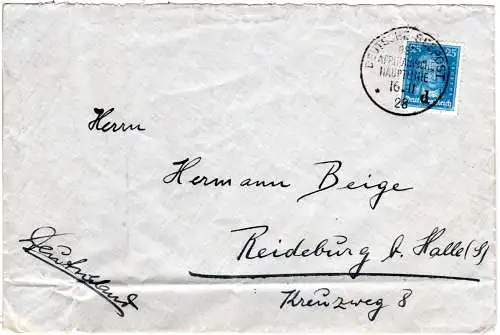 DEUTSCHE SEEPOST
AFRIKANISCHE
HAUPTLINIE
16. 11
28
25 25
Deutsches Reich
d
Herrn
Hermann Beige
Reideburg b. Halle (S)
Kreuzweg 8
Deutschland